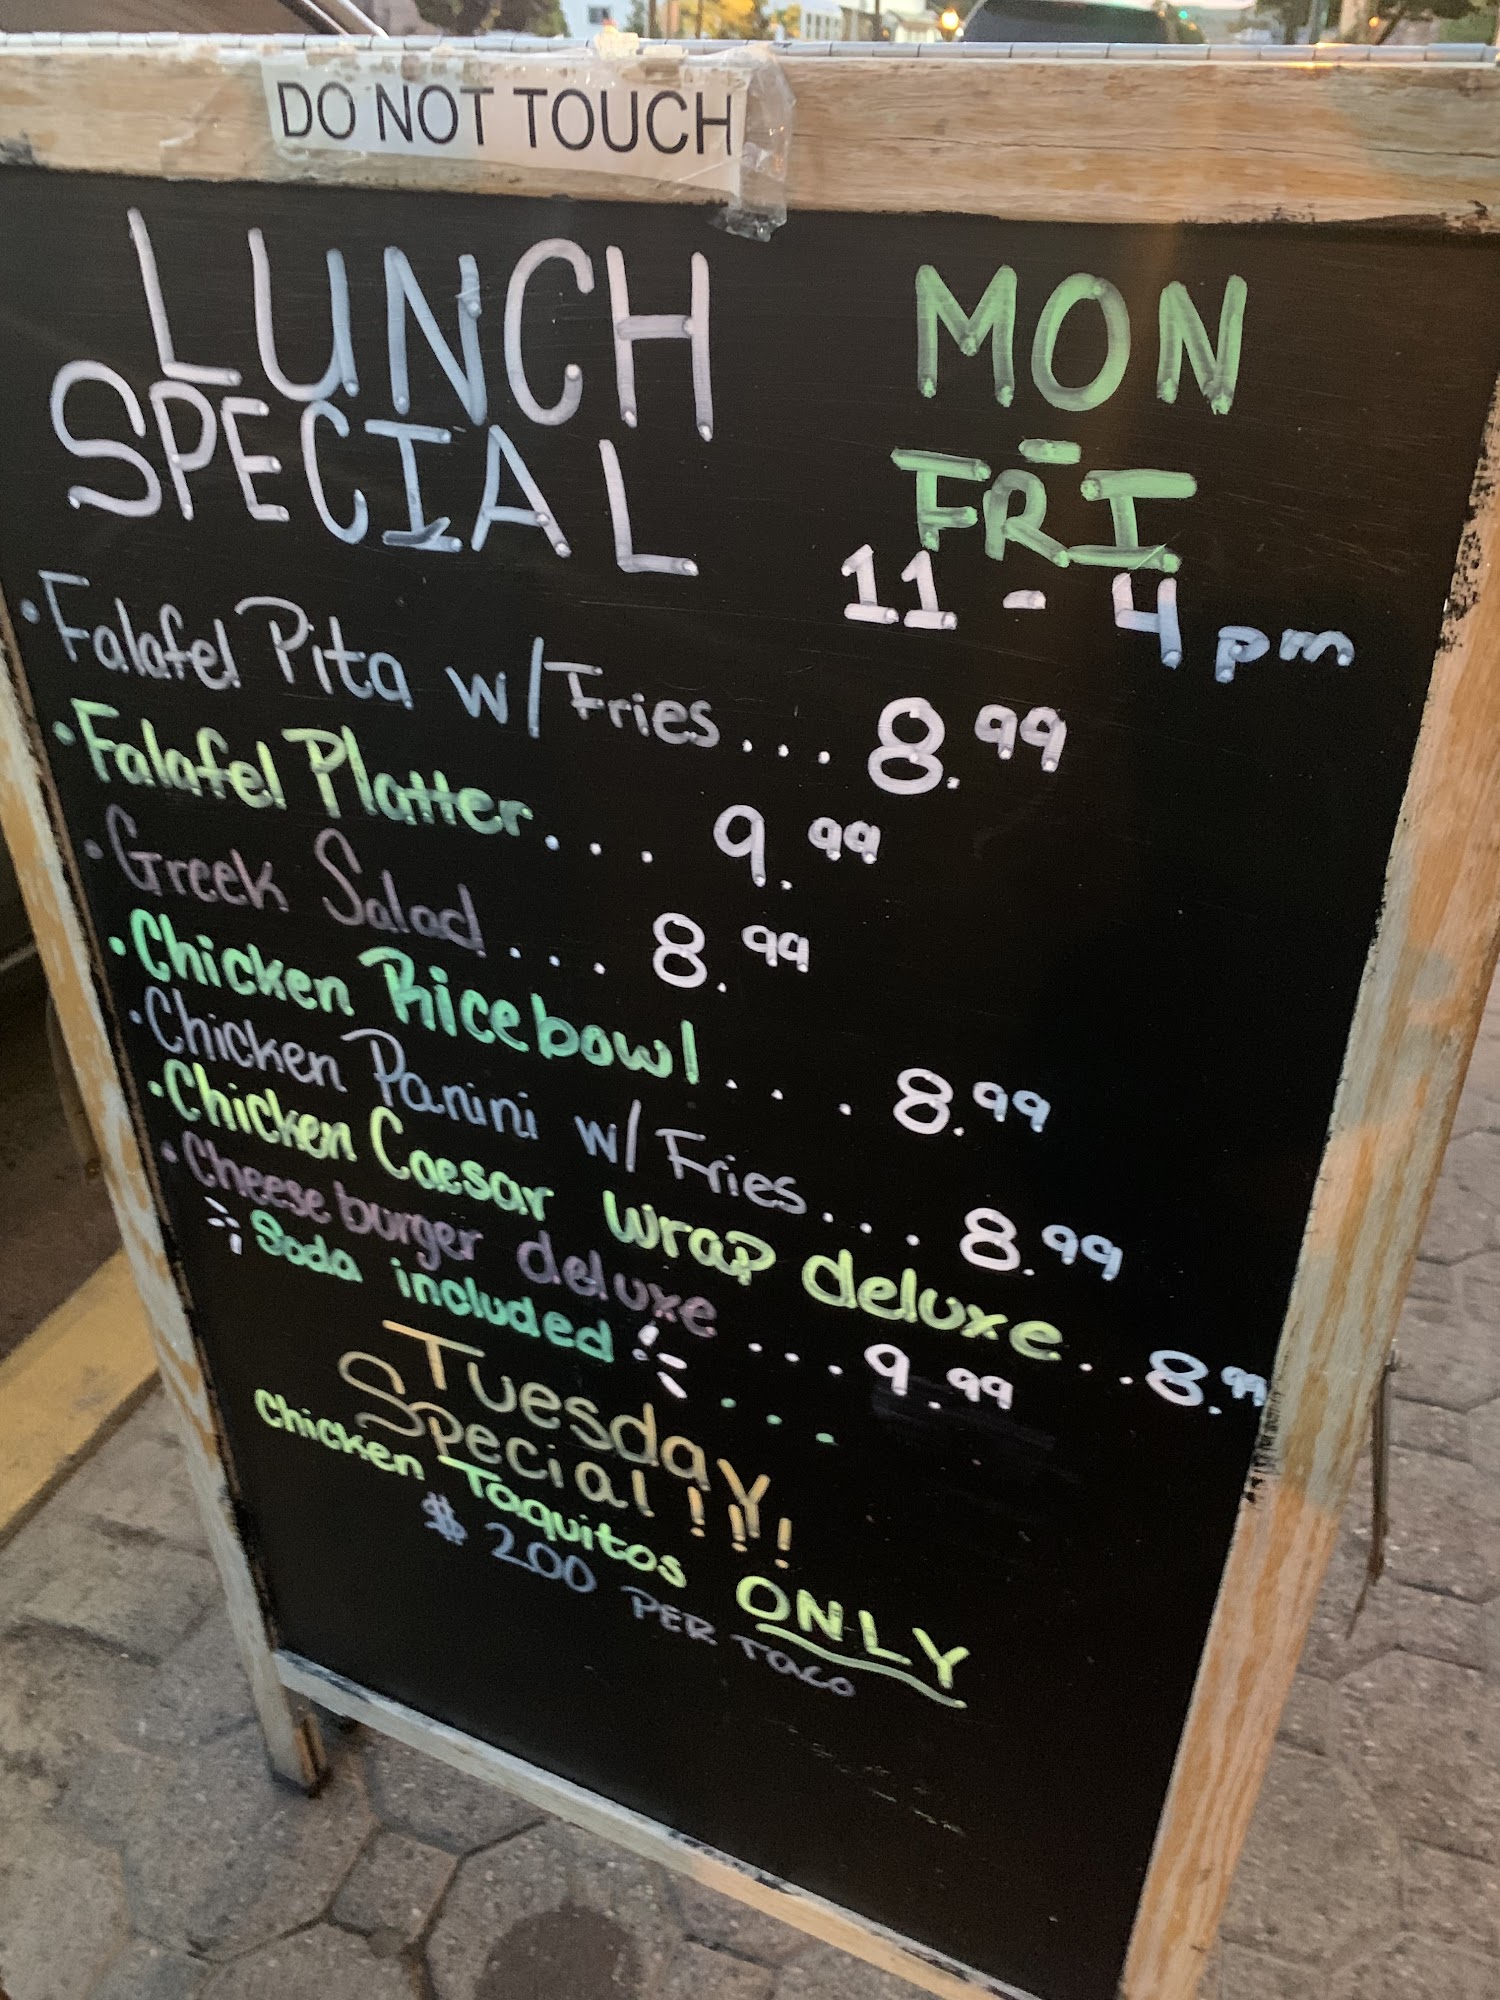 DO NOT TOUCH
LUNCH
SPECIAL
MON
-
FRI
11 - 4 pm
• Falafel Pita w/Fries... 8.99
• Falafel Platter.... 9.99
• Greek Salad.... 8.99
• Chicken Ricebowl... 8.99
• Chicken Panini w/Fries... 8.99
• Chicken Caesar Wrap deluxe..8.99
• Cheeseburger deluxe ... 9.99
Soda included ...
Tuesday
Special!!!
Chicken Taquitos ONLY
$ 2.00 PER TACO